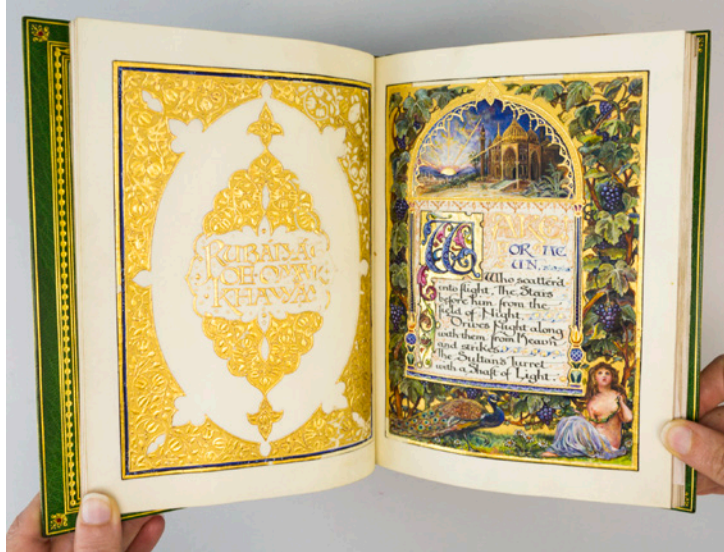 RUBÁIYÁT
OF OMAR
KHAYYÁM
WAKE!
FOR THE
SUN,
Who scatter'd
into flight, The Stars
before him from the
Field of Night,
Drives Night along
with them from Heav'n
and strikes
The Sultan's Turret
with a Shaft of Light.